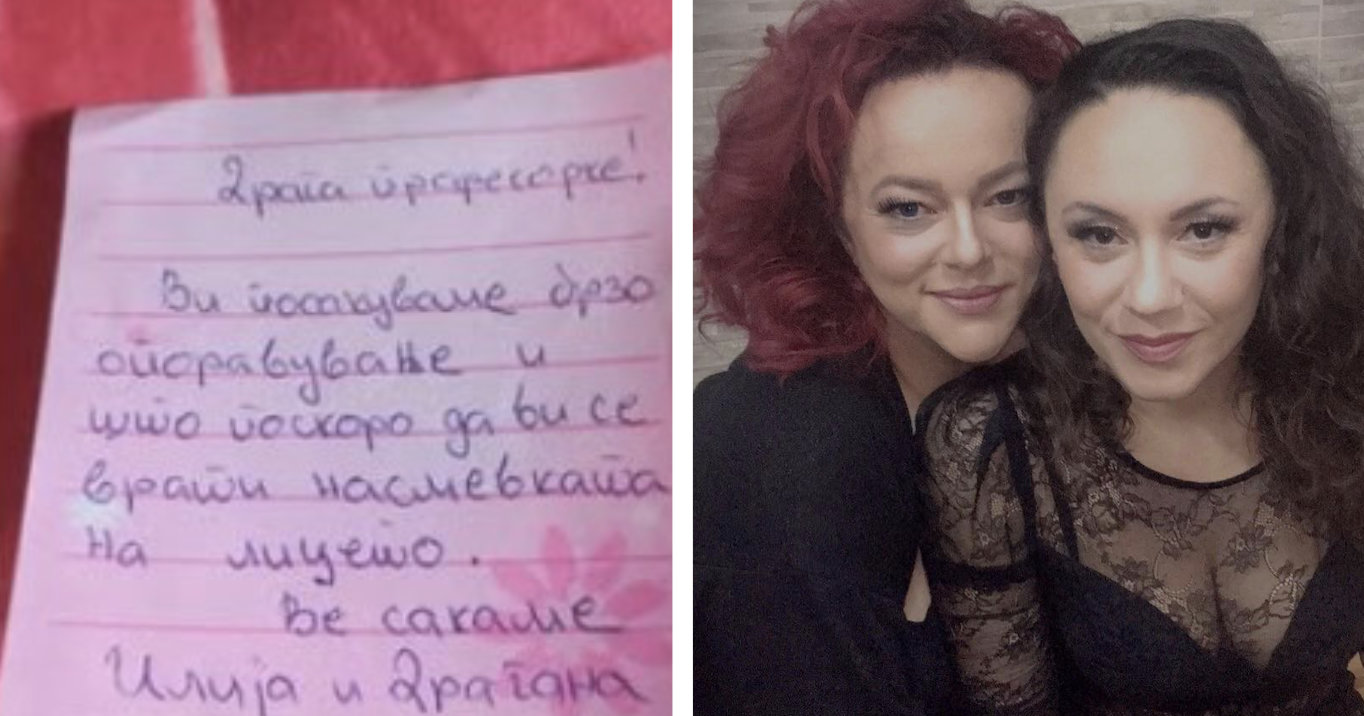 Драга професорке!
Ви посакуваме брзо
опоравување и
што поскоро да ви се
врати насмевката
на лицето.
Ве сакаме
Илија и Драгана